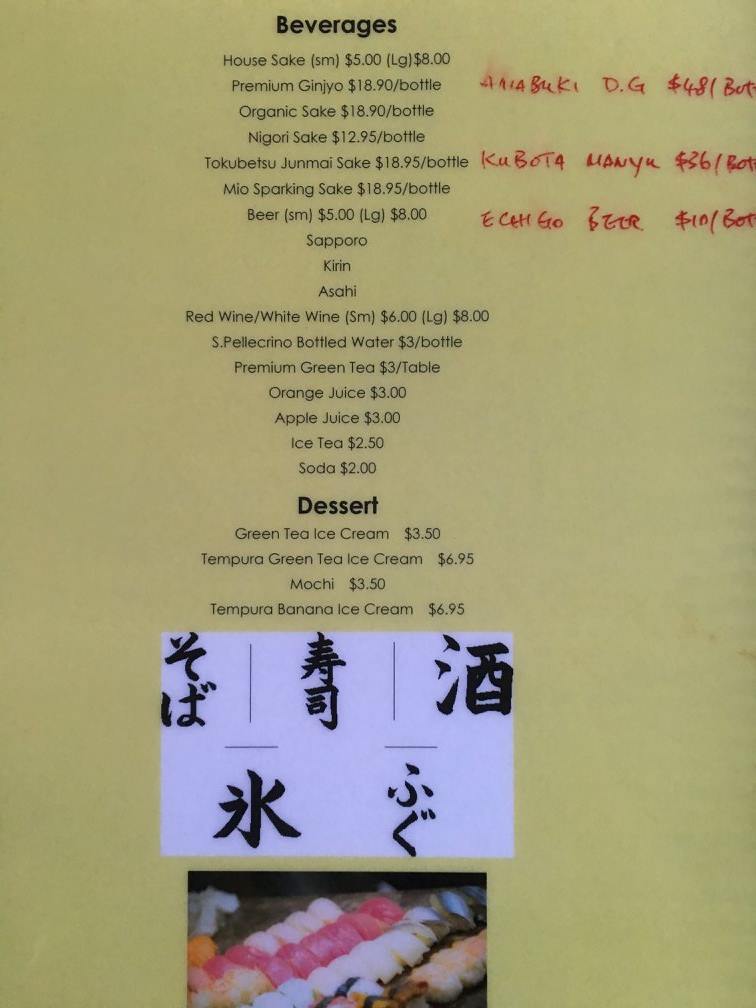 Beverages
House Sake (sm) $5.00 (Lg)$8.00
Premium Ginjyo $18.90/bottle
AMABUKI D.G $48/Bot
Organic Sake $18.90/bottle
Nigori Sake $12.95/bottle
Tokubetsu Junmai Sake $18.95/bottle
KUBOTA MANYU $36/Bot
Mio Sparking Sake $18.95/bottle
Beer (sm) $5.00 (Lg) $8.00
ECHIGO BEER $10/Bot
Sapporo
Kirin
Asahi
Red Wine/White Wine (Sm) $6.00 (Lg) $8.00
S.Pellecrino Bottled Water $3/bottle
Premium Green Tea $3/Table
Orange Juice $3.00
Apple Juice $3.00
Ice Tea $2.50
Soda $2.00
Dessert
Green Tea Ice Cream $3.50
Tempura Green Tea Ice Cream $6.95
Mochi $3.50
Tempura Banana Ice Cream $6.95
そば
寿司
酒
氷
ふぐ